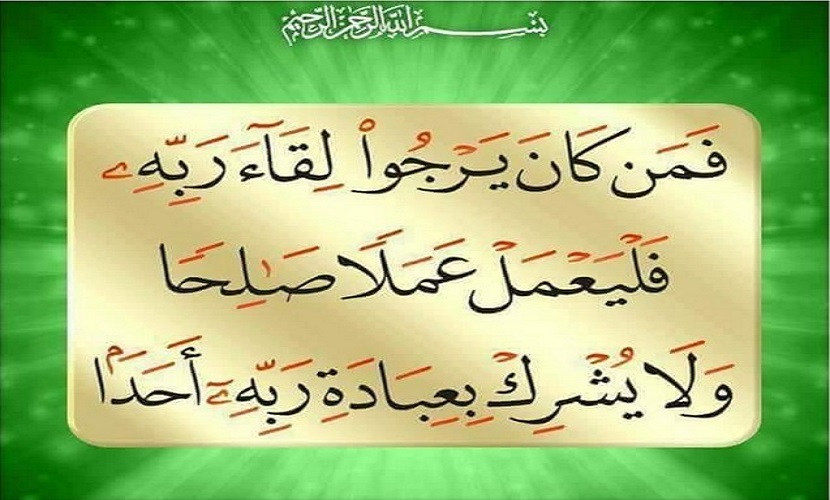 بسم الله الرحمن الرحيم
فَمَن كَانَ يَرْجُوا۟ لِقَآءَ رَبِّهِۦ
فَلْيَعْمَلْ عَمَلًا صَـٰلِحًا
وَلَا يُشْرِكْ بِعِبَادَةِ رَبِّهِۦٓ أَحَدًۢا